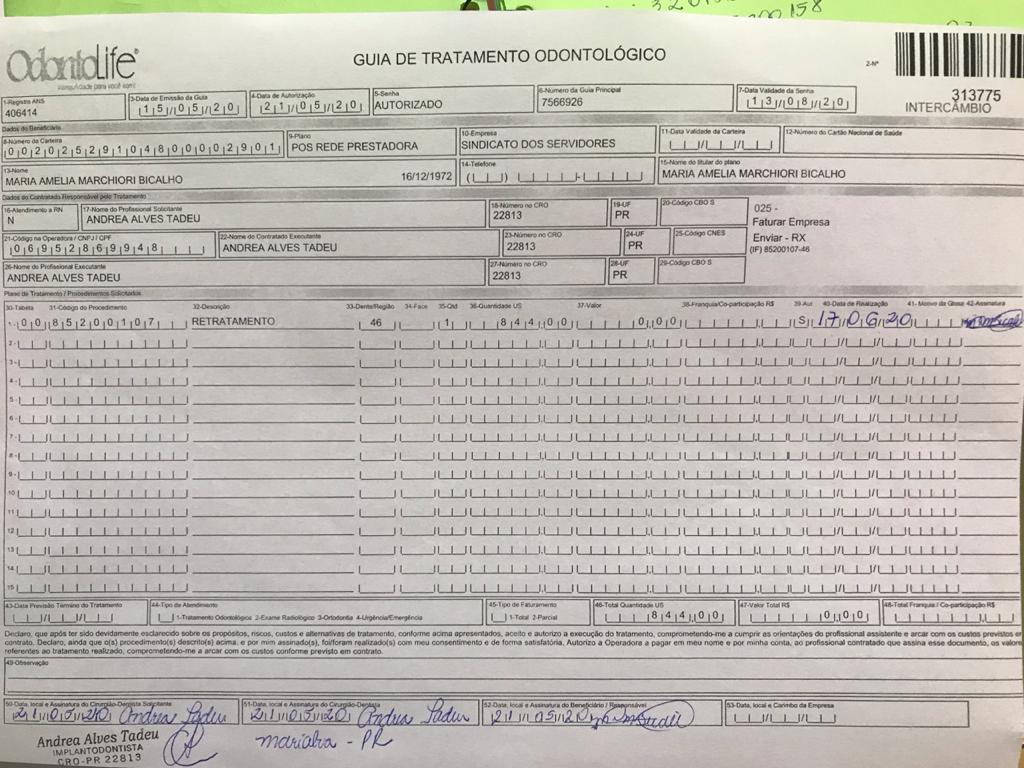 OdontoLife®
tranquilidade para você sorrir!
GUIA DE TRATAMENTO ODONTOLÓGICO
2-Nº
313775
INTERCÂMBIO
1-Registro ANS
406414
3-Data de Emissão da Guia
15/05/20
4-Data de Autorização
21/05/20
5-Senha
AUTORIZADO
6-Número da Guia Principal
7566926
7-Data Validade da Senha
13/08/20
Dados do Beneficiário
8-Número da Carteira
00202529104800002901
9-Plano
POS REDE PRESTADORA
10-Empresa
SINDICATO DOS SERVIDORES
11-Data Validade da Carteira
12-Número do Cartão Nacional de Saúde
13-Nome
MARIA AMELIA MARCHIORI BICALHO 16/12/1972
14-Telefone
15-Nome do titular do plano
MARIA AMELIA MARCHIORI BICALHO
Dados do Contratado Responsável pelo Tratamento
16-Atendimento a RN
N
17-Nome do Profissional Solicitante
ANDREA ALVES TADEU
18-Número no CRO
22813
19-UF
PR
20-Código CBO S
025 -
Faturar Empresa
Enviar - RX
(IF) 85200107-46
21-Código na Operadora / CNPJ / CPF
06952869948
22-Nome do Contratado Executante
ANDREA ALVES TADEU
23-Número no CRO
22813
24-UF
PR
25-Código CNES
26-Nome do Profissional Executante
ANDREA ALVES TADEU
27-Número no CRO
22813
28-UF
PR
29-Código CBO S
Plano de Tratamento / Procedimentos Solicitados
30-Tabela 31-Código do Procedimento 32-Descrição 33-Dente/Região 34-Face 35-Qtd 36-Quantidade US 37-Valor 38-Franquia/Co-participação R$ 39-Aut 40-Data de Realização 41- Motivo da Glosa 42-Assinatura
1- 00 85200107 RETRATAMENTO 46 1 844,00 0,00 S 17 06 20
2-
3-
4-
5-
6-
7-
8-
9-
10
11
12
13
14
15
43-Data Previsão Término do Tratamento
44-Tipo de Atendimento
1-Tratamento Odontológico 2-Exame Radiológico 3-Ortodontia 4-Urgência/Emergência
45-Tipo de Faturamento
1-Total 2-Parcial
46-Total Quantidade US
844,00
47-Valor Total R$
0,00
48-Total Franquia / Co-participação R$
Declaro, que após ter sido devidamente esclarecido sobre os propósitos, riscos, custos e alternativas de tratamento, conforme acima apresentados, aceito e autorizo a execução do tratamento, comprometendo-me a cumprir as orientações do profissional assistente e arcar com os custos previstos em
contrato. Declaro, ainda que o(s) procedimento(s) descrito(s) acima, e por mim assinado(s), foi/foram realizado(s) com meu consentimento e de forma satisfatória. Autorizo a Operadora a pagar em meu nome e por minha conta, ao profissional contratado que assina esse documento, os valores
referentes ao tratamento realizado, comprometendo-me a arcar com os custos conforme previsto em contrato.
49-Observação
50-Data, local e Assinatura do Cirurgião-Dentista Solicitante
21/05/20 Andrea Tadeu
51-Data, local e Assinatura do Cirurgião-Dentista
21/05/20 Andrea Tadeu
52-Data, local e Assinatura do Beneficiário / Responsável
21/05/20
53-Data, local e Carimbo da Empresa
Andrea Alves Tadeu
IMPLANTODONTISTA
CRO-PR 22813
marialva - PR